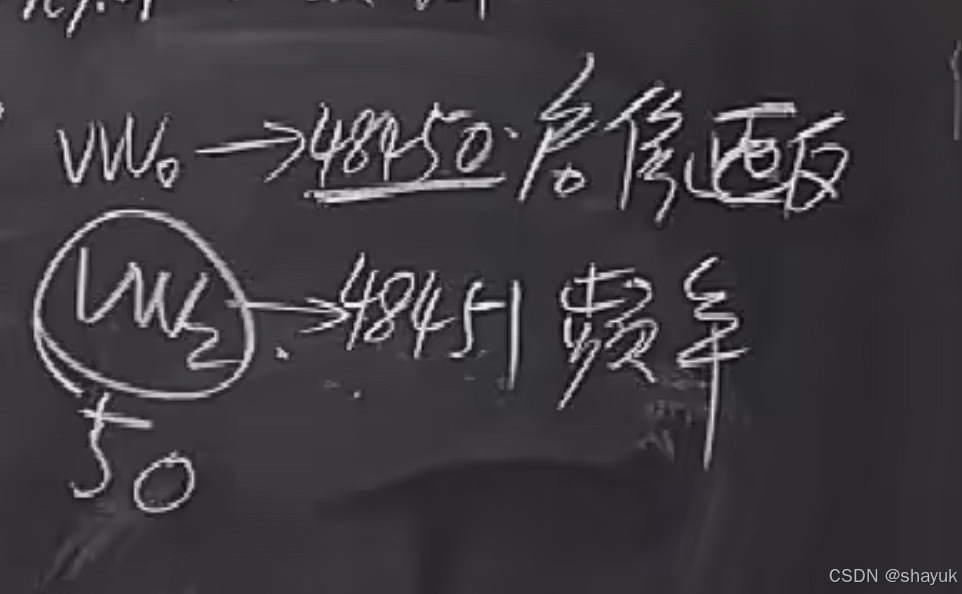 VW0→48450.启停正反
VW2→48451 频率
50
CSDN @shayuk